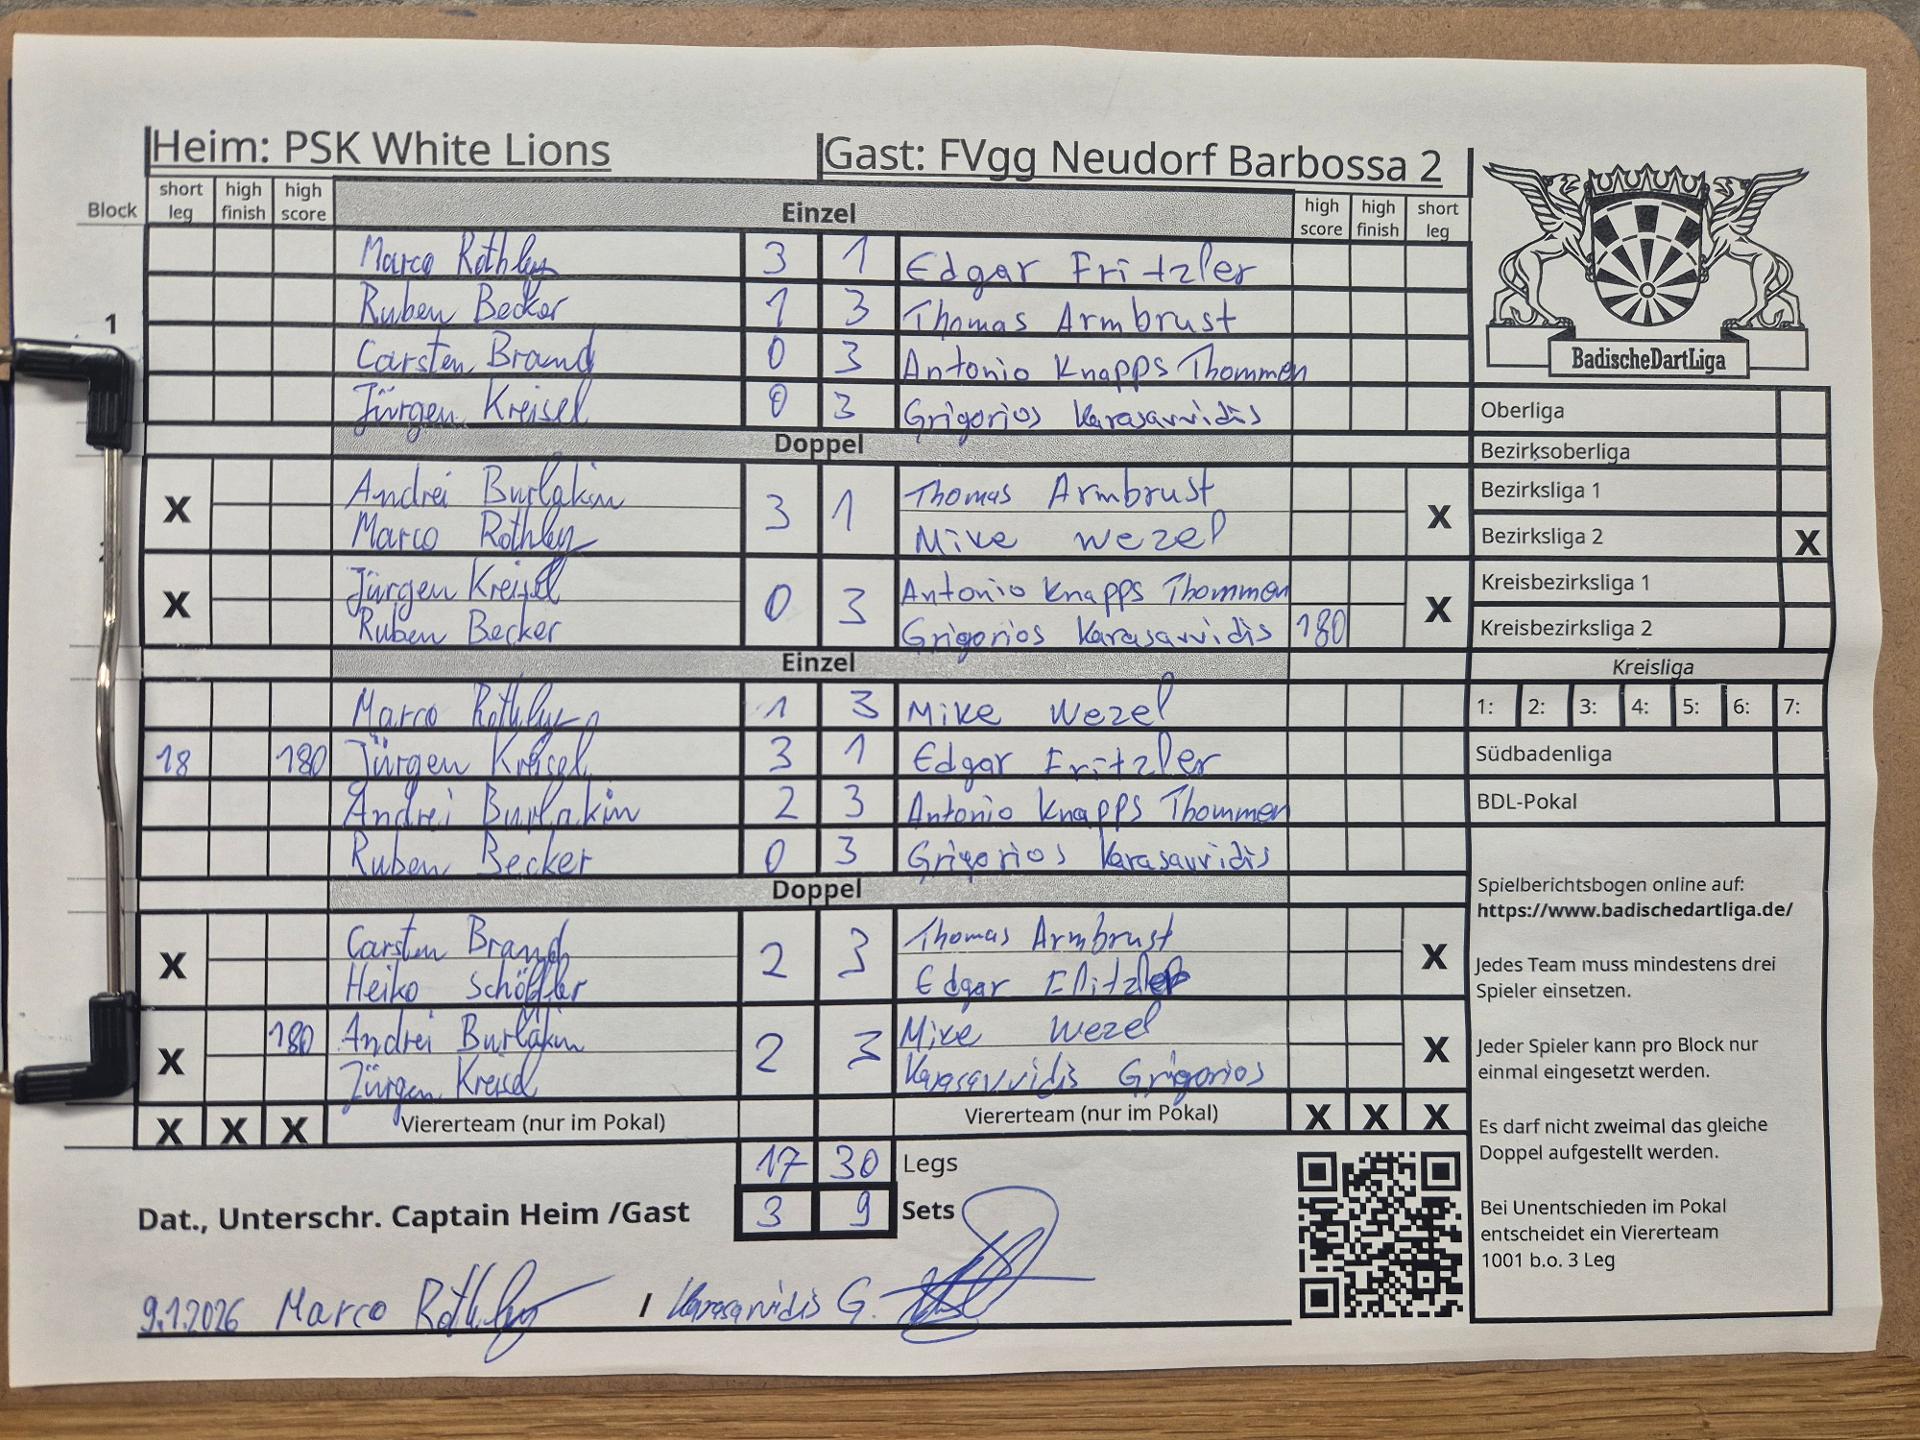 Heim: PSK White Lions Gast: FVgg Neudorf Barbossa 2
Block short leg high finish high score Einzel high score high finish short leg
Marco Rothley 3 1 Edgar Fritzler
1 Ruben Becker 1 3 Thomas Armbrust
Carsten Brand 0 3 Antonio Knapps Thommen
Jürgen Kreisel 0 3 Grigorios Karasavvidis
Doppel
X Andrei Burlakin 3 1 Thomas Armbrust X
Marco Rothley Mike Wezel
X Jürgen Kreisel 0 3 Antonio Knapps Thommen X
Ruben Becker Grigorios Karasavvidis 180
Einzel
Marco Rothley 1 3 Mike Wezel
18 180 Jürgen Kreisel 3 1 Edgar Fritzler
Andrei Burlakin 2 3 Antonio Knapps Thommen
Ruben Becker 0 3 Grigorios Karasavvidis
Doppel
X Carsten Brand 2 3 Thomas Armbrust X
Heiko Schöffler Edgar Flitzler
X 180 Andrei Burlakin 2 3 Mike Wezel X
Jürgen Kreisel Karasavvidis Grigorios
X X X Vierерteam (nur im Pokal) Viererteam (nur im Pokal) X X X
17 30 Legs
Dat., Unterschr. Captain Heim /Gast 3 9 Sets
9.1.2026 Marco Rothley / Karasavvidis G.
BadischeDartLiga
Oberliga
Bezirksoberliga
Bezirksliga 1
Bezirksliga 2 X
Kreisbezirksliga 1
Kreisbezirksliga 2
Kreisliga
1: 2: 3: 4: 5: 6: 7:
Südbadenliga
BDL-Pokal
Spielberichtsbogen online auf:
https://www.badischedartliga.de/
Jedes Team muss mindestens drei
Spieler einsetzen.
Jeder Spieler kann pro Block nur
einmal eingesetzt werden.
Es darf nicht zweimal das gleiche
Doppel aufgestellt werden.
Bei Unentschieden im Pokal
entscheidet ein Viererteam
1001 b.o. 3 Leg